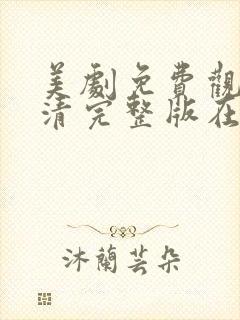 美劇免費觀
清完整版在
沐蘭芸朵